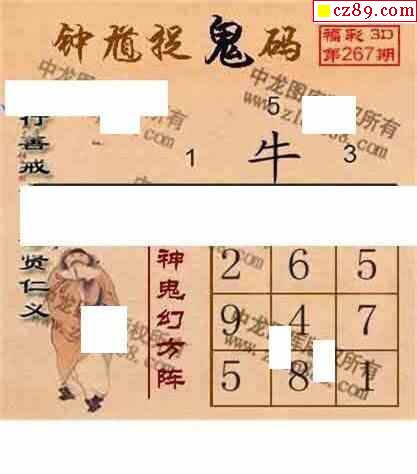 cz89.com
钟馗捉鬼码
福彩3D
第267期
5
1 牛 3
行善戒
贤仁义
神鬼幻方阵
2 6 5
9 4 7
5 8 1